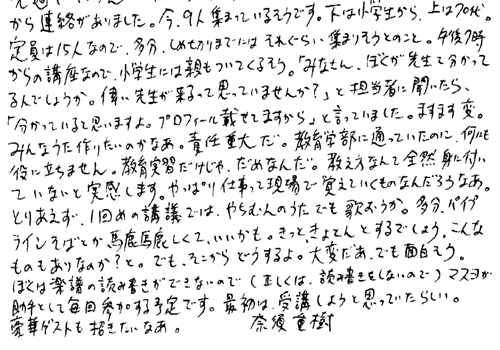 から連絡がありました。今、9人集まっているそうです。下は小学生から、上は70代。
定員は15人なので、多分、しめきりまでにはそれぐらい集まりそうとのこと。午後7時
からの講座なので、小学生には親もついてくるそう。「みなさん、ぼくが先生と分かって
るんでしょうか。偉い先生が来るって思っていませんか？」と担当者に聞いたら、
「分かっていると思いますよ。プロフィール載せてますから」と言っていました。ますます変。
みんなうた作りたいのかなあ。責任重大だ。教育学部に通っていたのに、何にも
役に立ちません。教育実習だけじゃ、だめなんだ。教え方なんて全然身に付い
ていないと実感します。やっぱり仕事って現場で覚えていくものなんだろうなあ。
とりあえず、1回めの講議では、やちむんのうたでも歌おうか。多分、パイプ
ラインそばとか馬鹿馬鹿しくて、いいかも。きっと、きょとんとするでしょう。こんな
ものもありなのか？と。でも、そこからどうするよ。大変だあ、でも面白そう。
ぼくは楽譜の読み書きができないので（正しくは、読み書きをしないので）マスヨが
助手として毎回参加する予定です。最初は、受講しようと思っていたらしい。
豪華ゲストも招きたいなあ。 奈須重樹